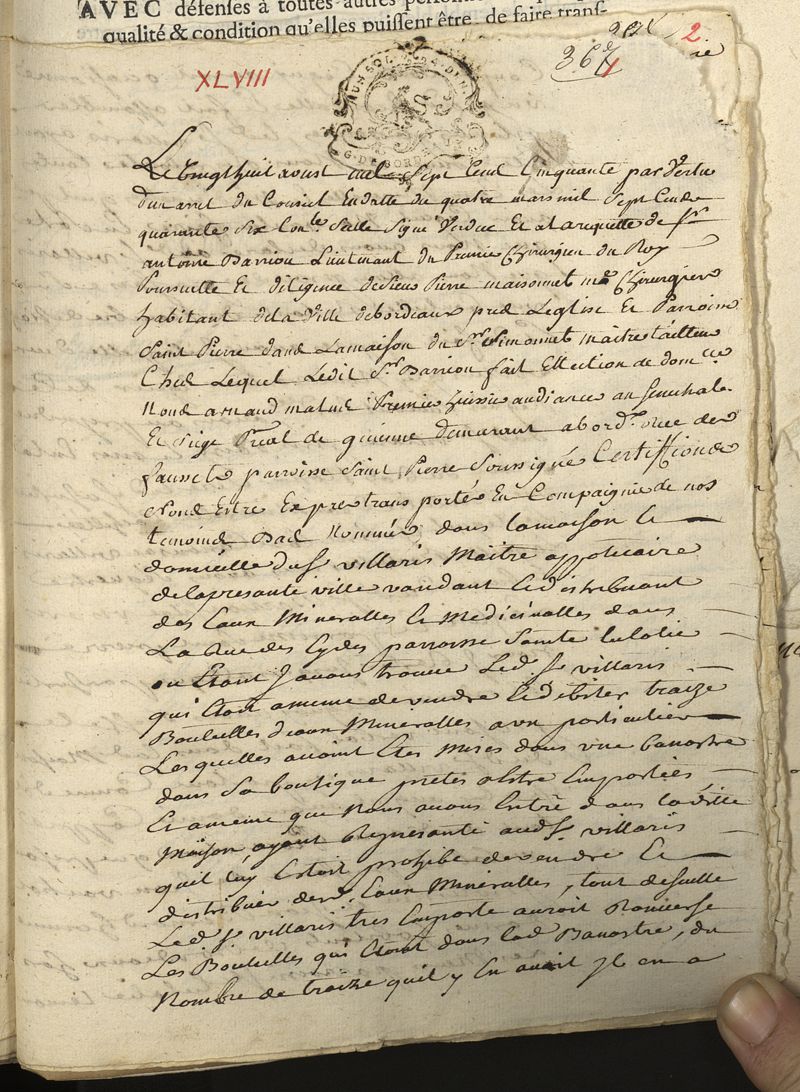 AVEC défenses à toutes autres
qualité & condition qu'elles puissent être, de faire trans-
2
367
XLVIII
UN SOL
G. DE BORD
Le vingt huit aoust mil sept Cent Cinquante par vertu
dun arret du Conseil En datte du quatre mars mil sept Cent
quarante six Signé Verduc Et a la requette de sr
antoine Barriou Lieutenant du Premier Chirurgien du Roy
Poursuitte Et diligence de sieur Pierre maisonnet me Chirurgien
habitant de la Ville de bordeaux pred Leglise Et Parroisse
Saint Pierre dans La maison du Sr Simonnet maitre tailleur
Ched Lequel Ledit Sr Barriou fait Ellection de domcille
Nous arnaud Premier huissier audiancier au senechal
Et siege Preal de guienne demurant a bordx rue des
faussets parroisse Saint Pierre Soussigné Certiffions
Nous Estre Expres transporté En Compagnie de nos
temoins bas Nommés dans la maison &
domicille du Sr villaris Maitre appoticaire
de la presante ville vandant & distribuant
des Eaux Mineralles & Medicinalles dans
La Rue des Eydes parroisse Sainte Eulalie
ou Etant J avons trouvé Led. Sr villaris
qui Etoit ameme de vendre & debiter traize
Bouteilles deaux Mineralles a un particulier
Les quelles avoint Etes mises dans une banastre
dans Sa boutique pretes a Estre Emportées
Et ameme que Nous avons Entré dans la ditte
Maison, ayant Represanté aud. Sr villaris
quil luy Estoit prohibé de vendre &
distribuer des Eaux Mineralles, tout de suitte
Led. Sr villaris tres Emporté auroit Renversé
Les Bouteilles qui Etoint dans lad. Banastre, du
Nombre de traize quil y En avoit Jl en a